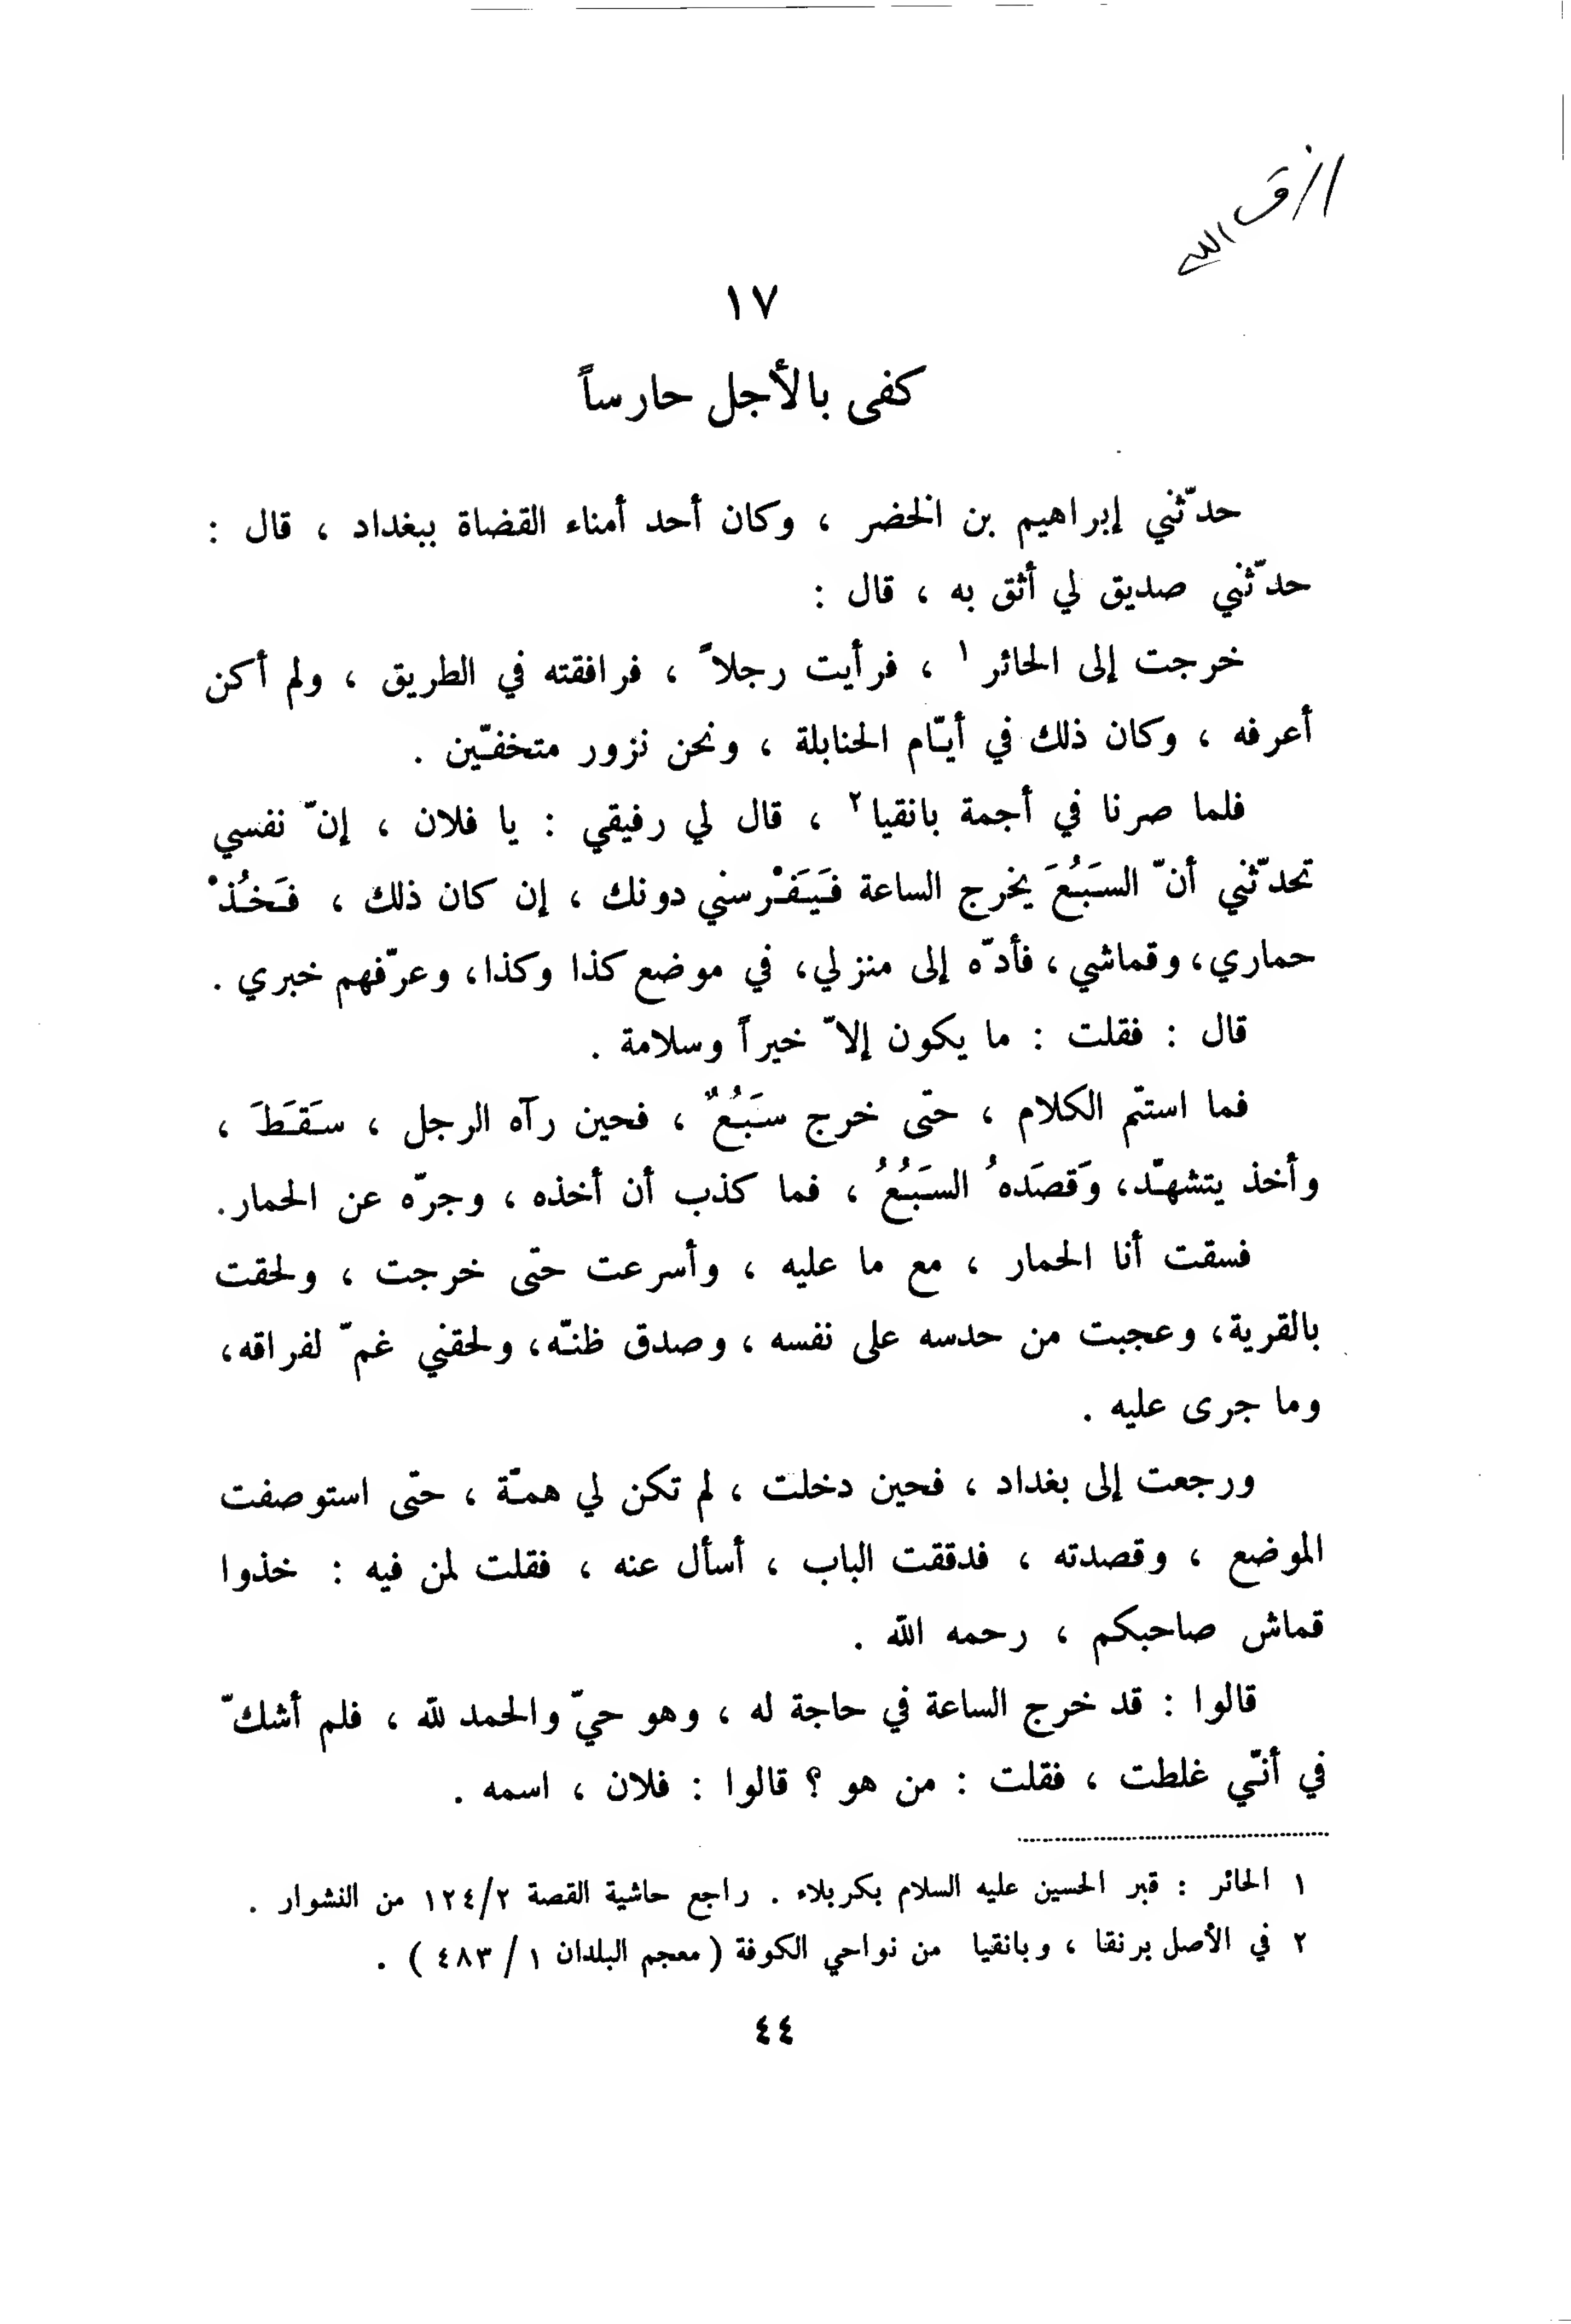 ١٧
كفى بالأجل حارساً
حدّثني إبراهيم بن الخضر ، وكان أحد أمناء القضاة ببغداد ، قال :
حدّثني صديق لي أثق به ، قال :
خرجت إلى الحائر ١ ، فرأيت رجلاً ، فرافقته في الطريق ، ولم أكن
أعرفه ، وكان ذلك في أيّام الحنابلة ، ونحن نزور متخفّين .
فلما صرنا في أجمة بانقيا ٢ ، قال لي رفيقي : يا فلان ، إنّ نفسي
تحدّثني أنّ السَبُعَ يخرج الساعة فَيَفْرسني دونك ، إن كان ذلك ، فَخُذْ
حماري، وقماشي ، فأدّه إلى منزلي، في موضع كذا وكذا، وعرّفهم خبري .
قال : فقلت : ما يكون إلاّ خيراً وسلامة .
فما استتم الكلام ، حتى خرج سَبُعٌ ، فحين رآه الرجل ، سَقَطَ ،
وأخذ يتشهّد، وَقصَدهُ السَبُعُ ، فما كذب أن أخذه ، وجرّه عن الحمار.
فسقت أنا الحمار ، مع ما عليه ، وأسرعت حتى خرجت ، ولحقت
بالقرية، وعجبت من حدسه على نفسه ، وصدق ظنّه، ولحقني غمّ لفراقه،
وما جرى عليه .
ورجعت إلى بغداد ، فحين دخلت ، لم تكن لي همّة ، حتّى استوصفت
الموضع ، وقصدته ، فدققت الباب ، أسأل عنه ، فقلت لمن فيه : خذوا
قماش صاحبكم ، رحمه الله .
قالوا : قد خرج الساعة في حاجة له ، وهو حيّ والحمد لله ، فلم أشكّ
في أنّي غلطت ، فقلت : من هو ؟ قالوا : فلان ، اسمه .
١ الحائر : قبر الحسين عليه السلام بكربلاء . راجع حاشية القصة ١٢٤/٢ من النشوار .
٢ في الأصل برنقا ، وبانقيا من نواحي الكوفة ( معجم البلدان ١ / ٤٨٣ ) .
٤٤